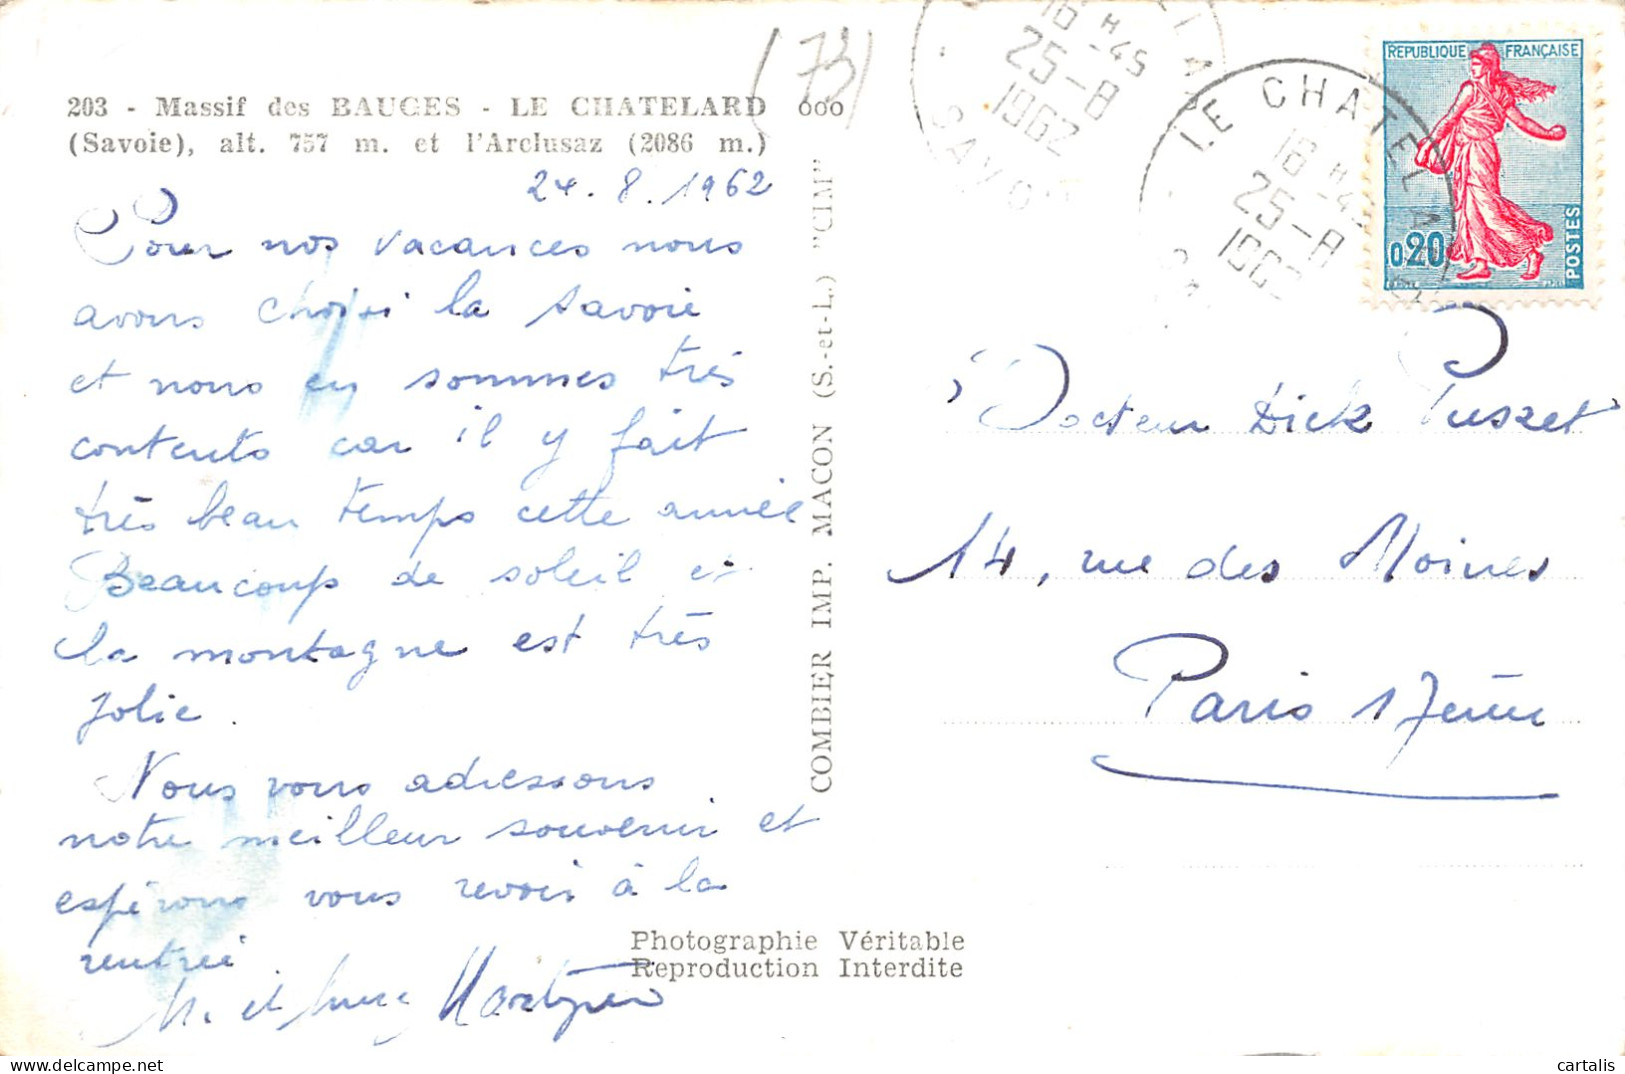 203 - Massif des BAUGES - LE CHATELARD
(Savoie), alt. 757 m. et l'Arclusaz (2086 m.)
(73)
ooo
24.8.1962
Pour nos vacances nous
avons choisi la Savoie
et nous en sommes très
contents car il y fait
très beau temps cette année
Beaucoup de soleil et
la montagne est très
jolie.
Nous vous adressons
notre meilleur souvenir et
espérons vous revoir à la
rentrée
M. et Mme
COMBIER IMP. MACON (S.-et-L.) "CIM"
Photographie Véritable
Reproduction Interdite
16 H 45
25-8
1962
SAVOIE
LE CHATELARD
16 H 45
25-8
REPUBLIQUE FRANÇAISE
0,20
POSTES
Docteur Dick Puszet
14, rue des Moines
Paris 17ème
cartalis